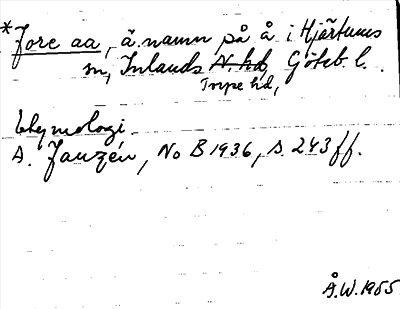 *Jore aa, ä.namn på å i Hjärtums
sn, Inlands N. hd, Göteb. l.
Torpe hd,
Etymologi.
A. Janzén, NoB 1936, s. 243 ff.
Å.W. 1955